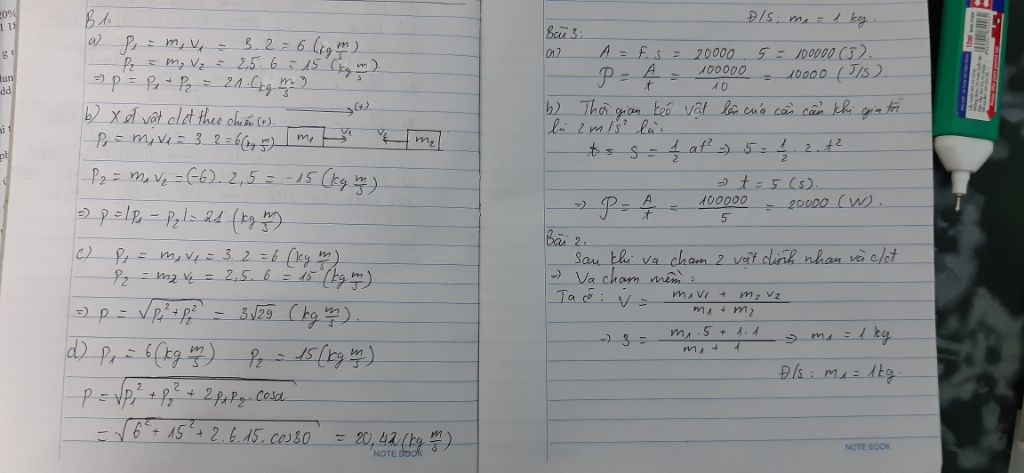 B1:
a) p₁ = m₁v₁ = 3.2 = 6 (kg m/s)
p₂ = m₂v₂ = 2,5.6 = 15 (kg m/s)
⇒ p = p₁ + p₂ = 21 (kg m/s)
(+)
b) Xét vật cđ theo chiều (+)
p₁ = m₁v₁ = 3.2 = 6 (kg m/s) m₁ v₁ v₂ m₂
p₂ = m₁v₂ = (-6).2,5 = -15 (kg m/s)
⇒ p = |p₁ - p₂| = 21 (kg m/s)
c) p₁ = m₁v₁ = 3.2 = 6 (kg m/s)
p₂ = m₂v₂ = 2,5.6 = 15 (kg m/s)
⇒ p = √(p₁² + p₂²) = 3√29 (kg m/s).
d) p₁ = 6 (kg m/s) p₂ = 15 (kg m/s)
p = √(p₁² + p₂² + 2p₁p₂.cosα)
= √(6² + 15² + 2.6.15.cos80) = 20,42 (kg m/s)
NOTE BOOK
Đ/S: m₁ = 1 kg.
Bài 3:
a) A = F.s = 20000.5 = 100000 (J).
P = A/t = 100000/10 = 10000 (J/s).
b) Thời gian kéo vật lên của cần cẩu khi gia tốc
là 2 m/s² là:
t = s = 1/2 at² ⇒ 5 = 1/2 . 2. t²
⇒ t = 5 (s).
⇒ P = A/t = 100000/5 = 20000 (W).
Bài 2:
Sau khi va chạm 2 vật dính nhau và c/đt
⇒ Va chạm mềm:
Ta có: V = (m₁v₁ + m₂v₂)/(m₁ + m₂)
⇒ 3 = (m₁.5 + 1.1)/(m₁ + 1) ⇒ m₁ = 1 kg
Đ/S: m₁ = 1kg.
NOTE BOOK